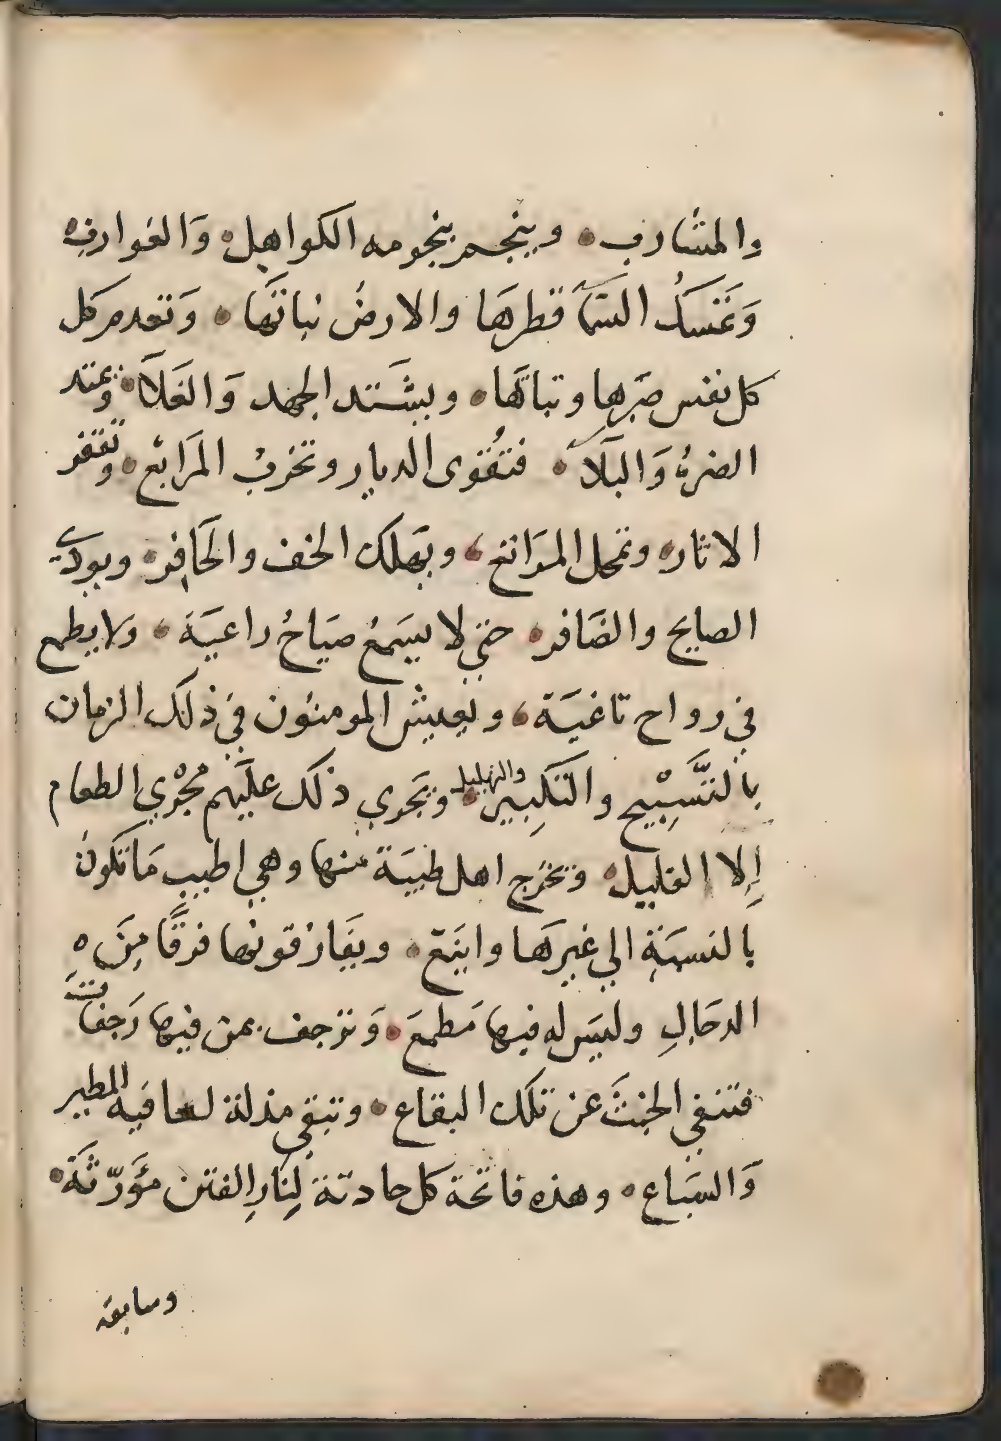 والمشارب وينجم بنجومه الكواهل وَالغوارب
وَتمَسكُ السَّمآ قطرهَا والارضُ نباتهَا وَتعدم كل
كل نفس صَبرها وثباتهَا ويشَتد الجهد وَالغَلآ ويمتد
الضرُ وَالبَلآ فتُقوى الديار وتخربُ المَرابع وتقفر
الاثار وتمحل المرَاتع ويَهلك الخف والحَافر ويودي
الصايح والصَافر حتي لا يسَمعُ صيَاحُ راعيَة ولا يطمع
في رواح ثاغيَة ويَعيش المومنُون في ذلَك الزمان
بالتَّسِبْيح والتَكِبير والتهليل وَيَجري ذلك علَيهم مجْري الطعام
إِلا القليل وَيخرَج اهل طيبَة منها وهي اطيب مَا تكونُ
بالنسمَةِ الي غيرهَا واينَع ويفَارقونها فرقًا مِنَ ه
الدجَالِ وليسَ له فيها مَطمعَ وَترجف بمن فيها رَجفات
فتنفي الخبثَ عن تلك البقاع وتبقي مذللة لعافية الطير
وَالسَباع وهذه فاتحة كل حادثة لِنارِ الفتن مؤَرّثَة
وسابقة